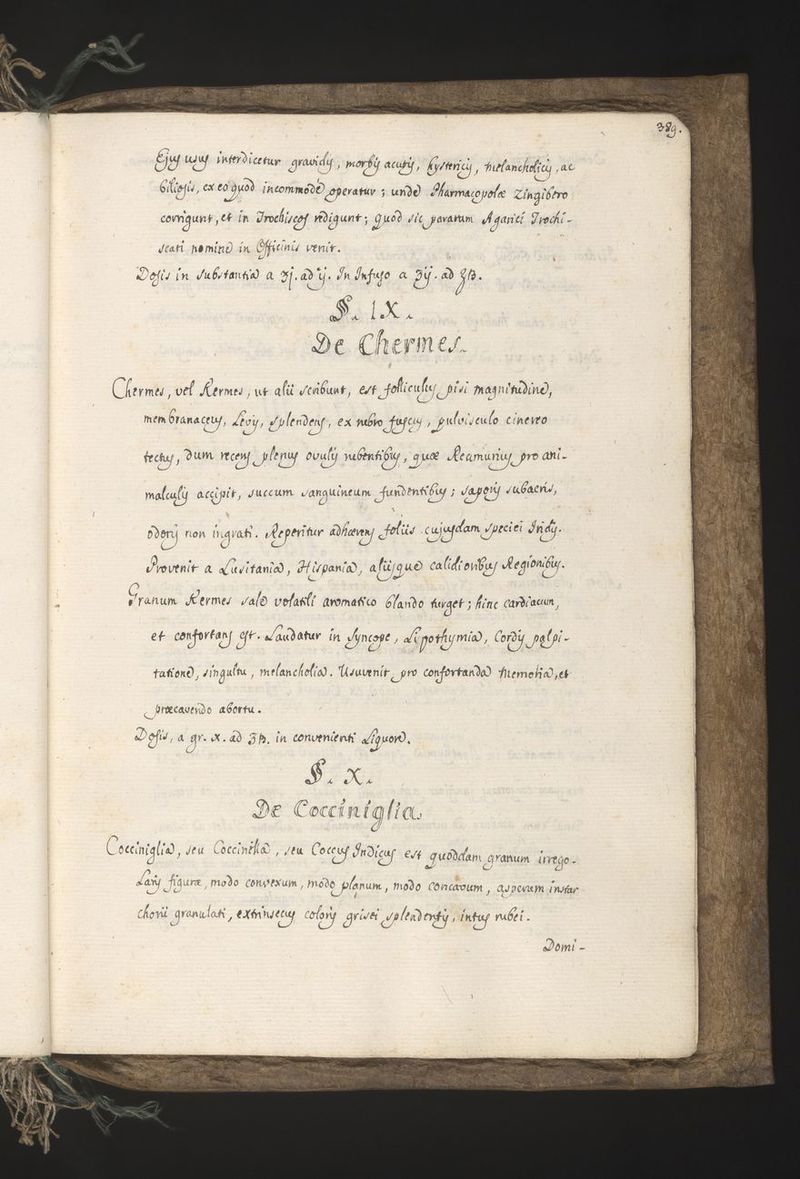 389.
Ejus usus interdicetur gravidis, morbis acutis, hystericis, melancholicis, ac
biliosis, ex eo quod incommodè operatur; unde Pharmacopolæ Zingibero
corrigunt, et in Trochiscos redigunt; quod sic paratum Agarici Trochi-
scati nomine in Officinis venit.
Dosis in substantia a ʒj. ad ij. In Infuso a ʒij. ad ℥ß.
§. IX.
De Chermes.
Chermes, vel Kermes, ut alii scribunt, est folliculus pisi magnitudine,
membranaceus, Levis, splendens, ex rubro fuscus, pulvisculo cinereo
tectus, dum recens plenus ovulis rubentibus, quæ Reamurius pro ani-
malculis accipit, succum sanguineum fundentibus; saporis subacris,
odoris non ingrati. Reperitur adhærens foliis cujusdam speciei Iridis.
Provenit a Lusitania, Hispania, aliisque calidioribus Regionibus.
Granum Kermes sale volatili aromatico blando turget; hinc cardiacum,
et confortans est. Laudatur in syncope, Lipothymia, Cordis palpi-
tatione, singultu, melancholia. Usuvenit pro confortanda Memoria, et
præcavendo abortu.
Dosis, a gr. x. ad ʒß. in convenienti Liquore.
§. X.
De Cocciniglia.
Cocciniglia, seu Coccinella, seu Coccus Indicus est quoddam granum irrego-
Laris figuræ, modo convexum, modo planum, modo concavum, asperum instar
chorii granulati, extrinsecus coloris grisei splendentis, intus rubei.
Domi-